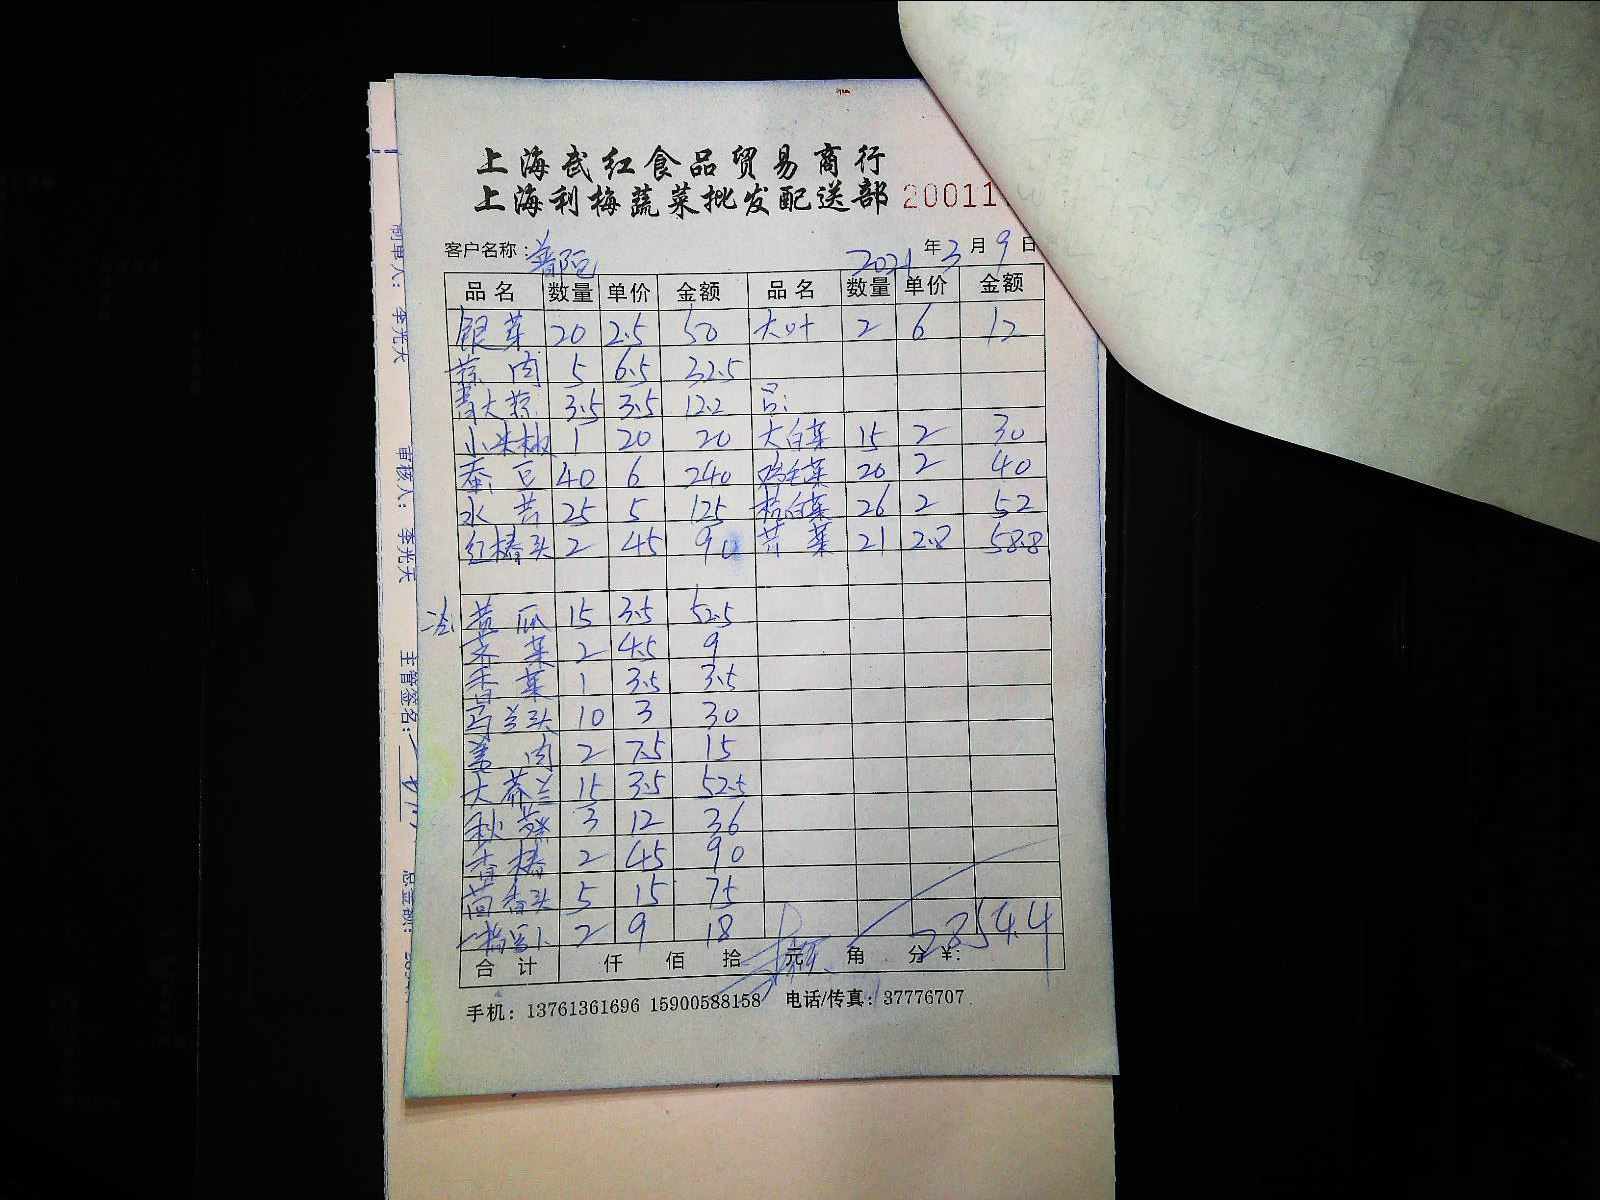 上海武红食品贸易商行
上海利梅蔬菜批发配送部 20011
客户名称：普陀 2021年3月9日
品名 数量 单价 金额 品名 数量 单价 金额
银芽 20 2.5 50 大叶 2 6 12
蒜肉 5 6.5 32.5
青大蒜 3.5 3.5 12.2 吕:
小米椒 1 20 20 大白菜 15 2 30
蚕豆 40 6 240 鸡毛菜 20 2 40
水芹 25 5 125 杭白菜 26 2 52
红椿头 2 45 90 芹菜 21 2.8 58.8
冷: 黄瓜 15 3.5 52.5
荠菜 2 4.5 9
香菜 1 3.5 3.5
马兰头 10 3 30
姜肉 2 7.5 15
大芥兰 15 3.5 52.5
秋葵 3 12 36
香椿 2 45 90
茴香头 5 15 75
2 9 18
合计 仟 佰 拾 元 角 分 ¥: 2354.4
手机：13761361696 15900588158 电话/传真：37776707
制单人： 李光天
审核人： 李光天
主管签名：